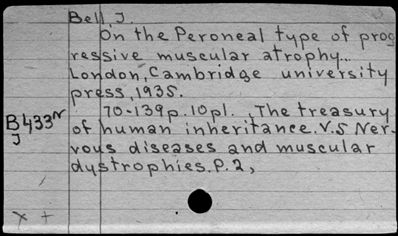 Bell, J.
On the Peroneal type of prog
ressive muscular atrophy...
London, Cambridge university
press, 1935.
70-139p. 10pl. (The treasury
of human inheritance. V.5 Ner-
vous diseases and muscular
dystrophies. P. 2,
B433N
J
x +